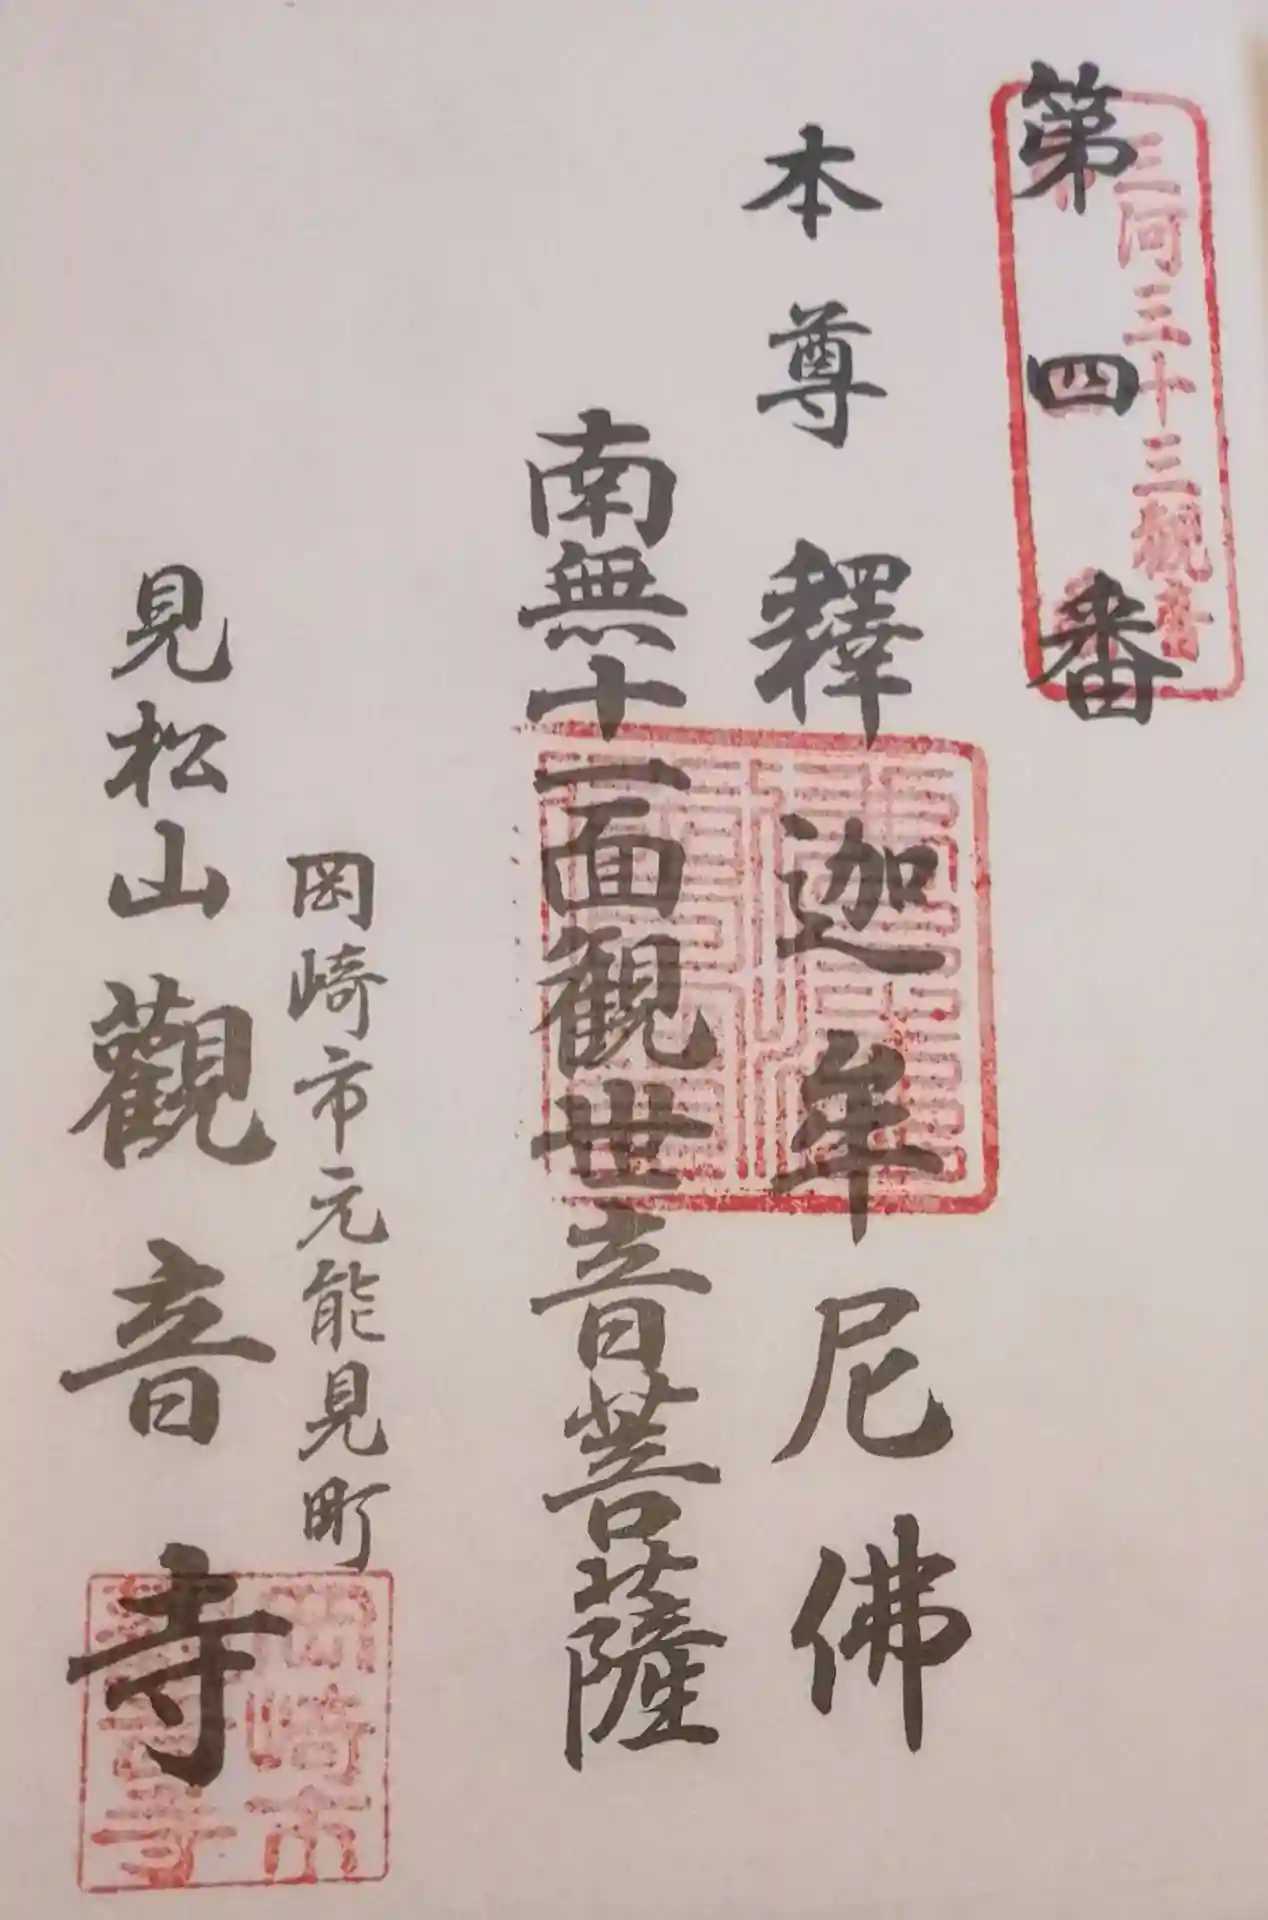 三河三十三観音
第四番
本尊 釋迦牟尼佛
南無十一面観世音菩薩
岡崎市元能見町
見松山 觀音寺
岡崎市
觀音寺